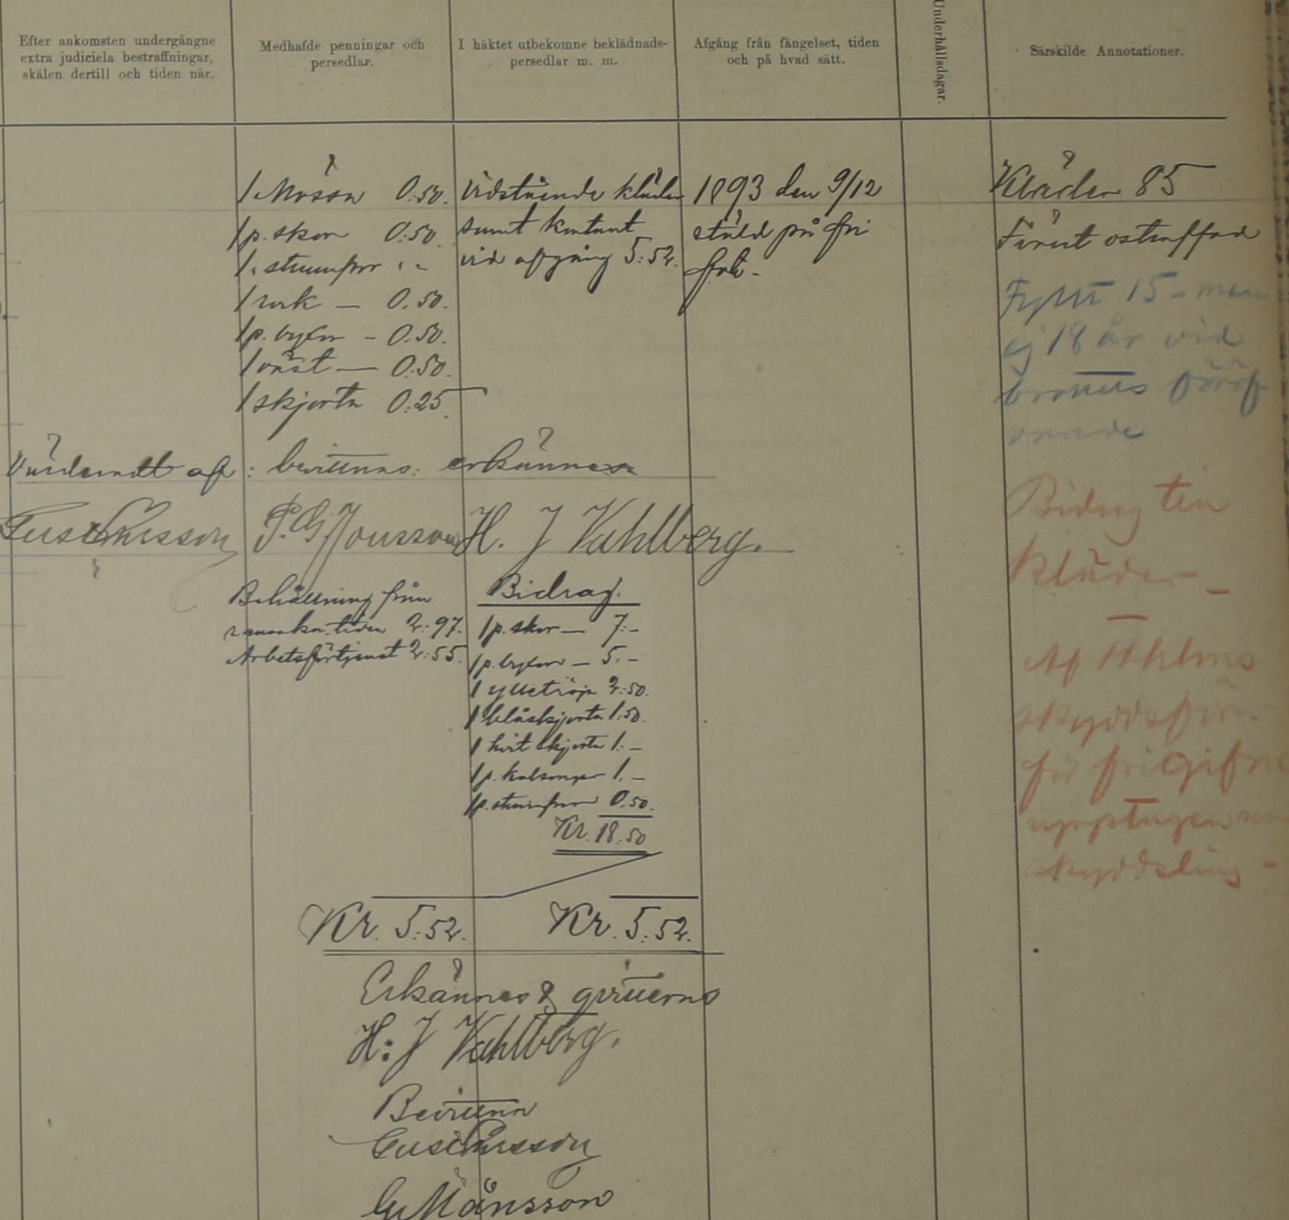 Efter ankomsten undergångne
extra judiciela bestraffningar,
skälen dertill och tiden när.
Medhafde penningar och
persedlar.
I häktet utbekomne beklädnads-
persedlar m. m.
Afgång från fängelset, tiden
och på hvad sätt.
Underhållsdagar.
Särskilde Annotationer.
1 Mössa 0.50.
1 p. skor 0:50.
1 . strumpor " "
1 rock — 0.50.
1 p. byxor – 0.50.
1 väst — 0:50.
1 skjorta 0.25.
Vidstående kläder
samt kontant
vid afgång 5:52.
1893 den 9/12
stäld på fri
fot.
Kläder 85
Förut ostraffad
Fyllt 15 – men
ej 18 år vid
brottets föröf
vande
Bidrag till
kläder –
Af Malmö
skyddsför.
för frigifne
upptagen som
skyddsling –
Värderadt af : bevittnas: erkännes
P. G. Jonsson H. J Vahlberg.
Behållning från
ransakn. tiden 2:97.
Arbetsförtjenst 2:55.
Bidrag.
1 p. skor — 7:–
1 p. byxor — 5:–
1 ylletröja 2:50.
1 blåskjorta 1:50.
1 hvit skjorta 1:–
1 p. kalsonger 1.–
1 p. strumpor 0.50.
Kr. 18.50
Kr. 5:52. Kr. 5.52.
Erkännes & qvitteras
H: J Vahlberg.
Bevittna
Månsson